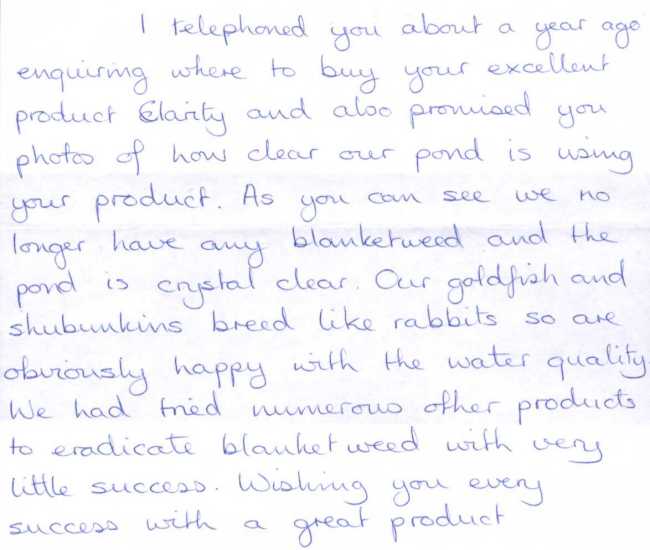 I telephoned you about a year ago
enquiring where to buy your excellent
product Clarity and also promised you
photos of how clear our pond is using
your product. As you can see we no
longer have any blanketweed and the
pond is crystal clear. Our goldfish and
shubunkins breed like rabbits so are
obviously happy with the water quality
We had tried numerous other products
to eradicate blanket weed with very
little success. Wishing you every
success with a great product